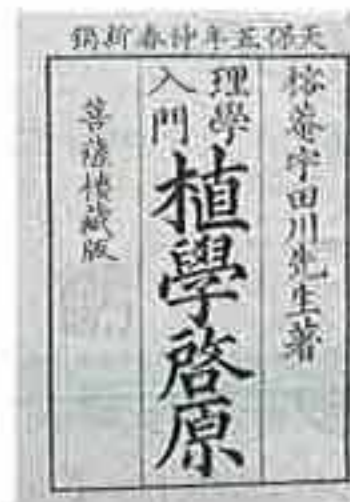 天保五年仲春新鐫
榕菴宇田川先生著
理學
入門
植學啓原
菩薩樓藏版